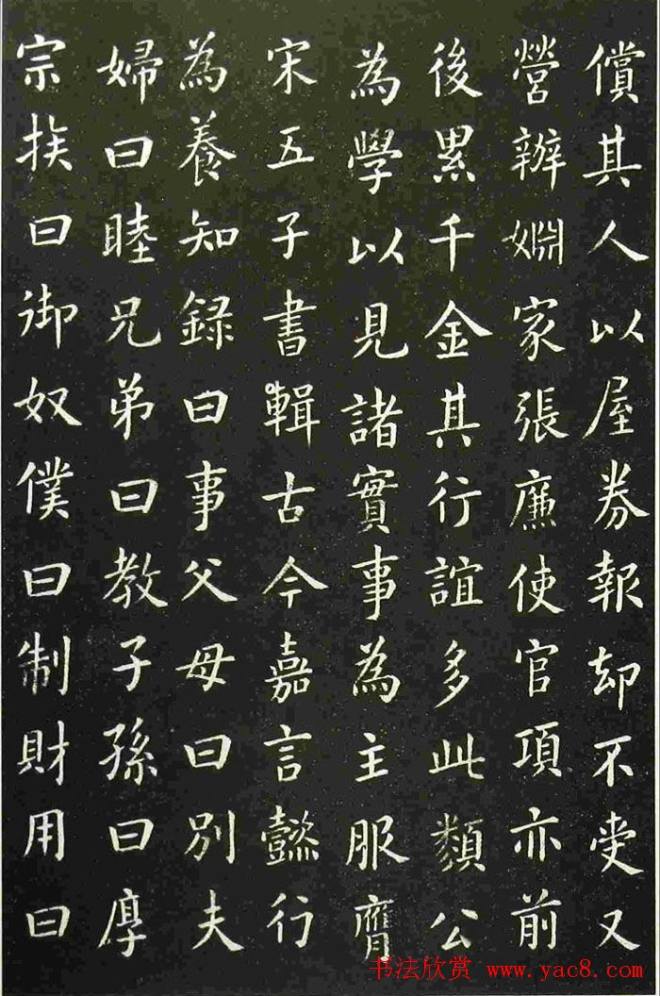 償其人以屋券報却不受又
營辦姻家張廉使官項亦前
後累千金其行誼多此類公
為學以見諸實事為主服膺
宋五子書輯古今嘉言懿行
為養知録曰事父母曰別夫
婦曰睦兄弟曰教子孫曰厚
宗族曰御奴僕曰制財用曰
书法欣赏 www.yac8.com